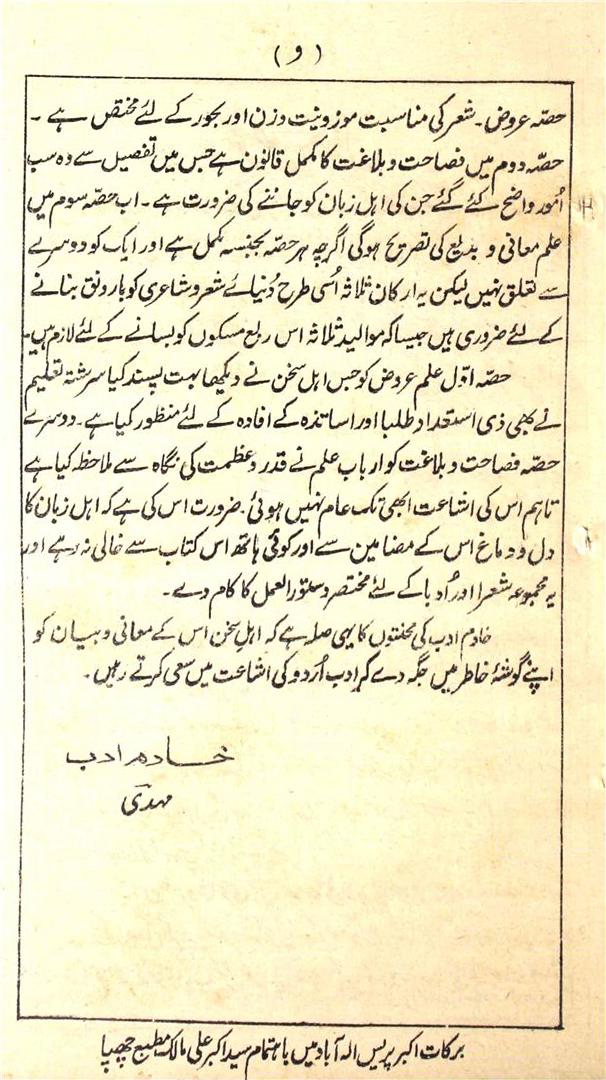 (و)
حصّہ عروض۔ شعر کی مناسبت موزونیت وزن اور بحور کے لئے مختص ہے ۔
حصّہ دوم میں فصاحت و بلاغت کا مکمل قانون ہے جس میں تفصیل سے وہ سب
اُمور واضح کئے گئے جن کی اہل زبان کو جاننے کی ضرورت ہے ۔ اب حصّہ سوم میں
علم معانی و بدیع کی تصریح ہوگی اگرچہ ہر حصّہ بجنسہ مکمل ہے اور ایک کو دوسرے
سے تعلق نہیں لیکن یہ ارکان ثلاثہ اُسی طرح دُنیائے شعر و شاعری کو بارونق بنانے
کے لئے ضروری ہیں جیسا کہ موالید ثلاثہ اس ربع مسکوں کو بسانے کے لئے لازم ہیں۔
حصّہ اوّل علم عروض کو جس اہل سخن نے دیکھا بہت پسند کیا سرشتۂ تعلیم
نے بھی ذی استعداد طلبا اور اساتذہ کے افادہ کے لئے منظور کیا ہے۔ دوسرے
حصّہ فصاحت و بلاغت کو ارباب علم نے قدر و عظمت کی نگاہ سے ملاحظہ کیا ہے
تاہم اس کی اشاعت ابھی تک عام نہیں ہوئی۔ ضرورت اس کی ہے کہ اہل زبان کا
دل و دماغ اس کے مضامین سے اور کوئی ہاتھ اس کتاب سے خالی نہ رہے اور
یہ مجموعہ شعرا اور اُدبا کے لئے مختصر دستور العمل کا کام دے ۔
خادم ادب کی محنتوں کا یہی صلہ ہے کہ اہل سخن اس کے معانی و بیان کو
اپنے گوشۂ خاطر میں جگہ دے کر ادب اُردو کی اشاعت میں سعی کرتے رہیں ۔
خادم ادب
مہدی
برکات اکبر پریس الہ آباد میں باہتمام سید اکبر علی مالک مطبع چھپا